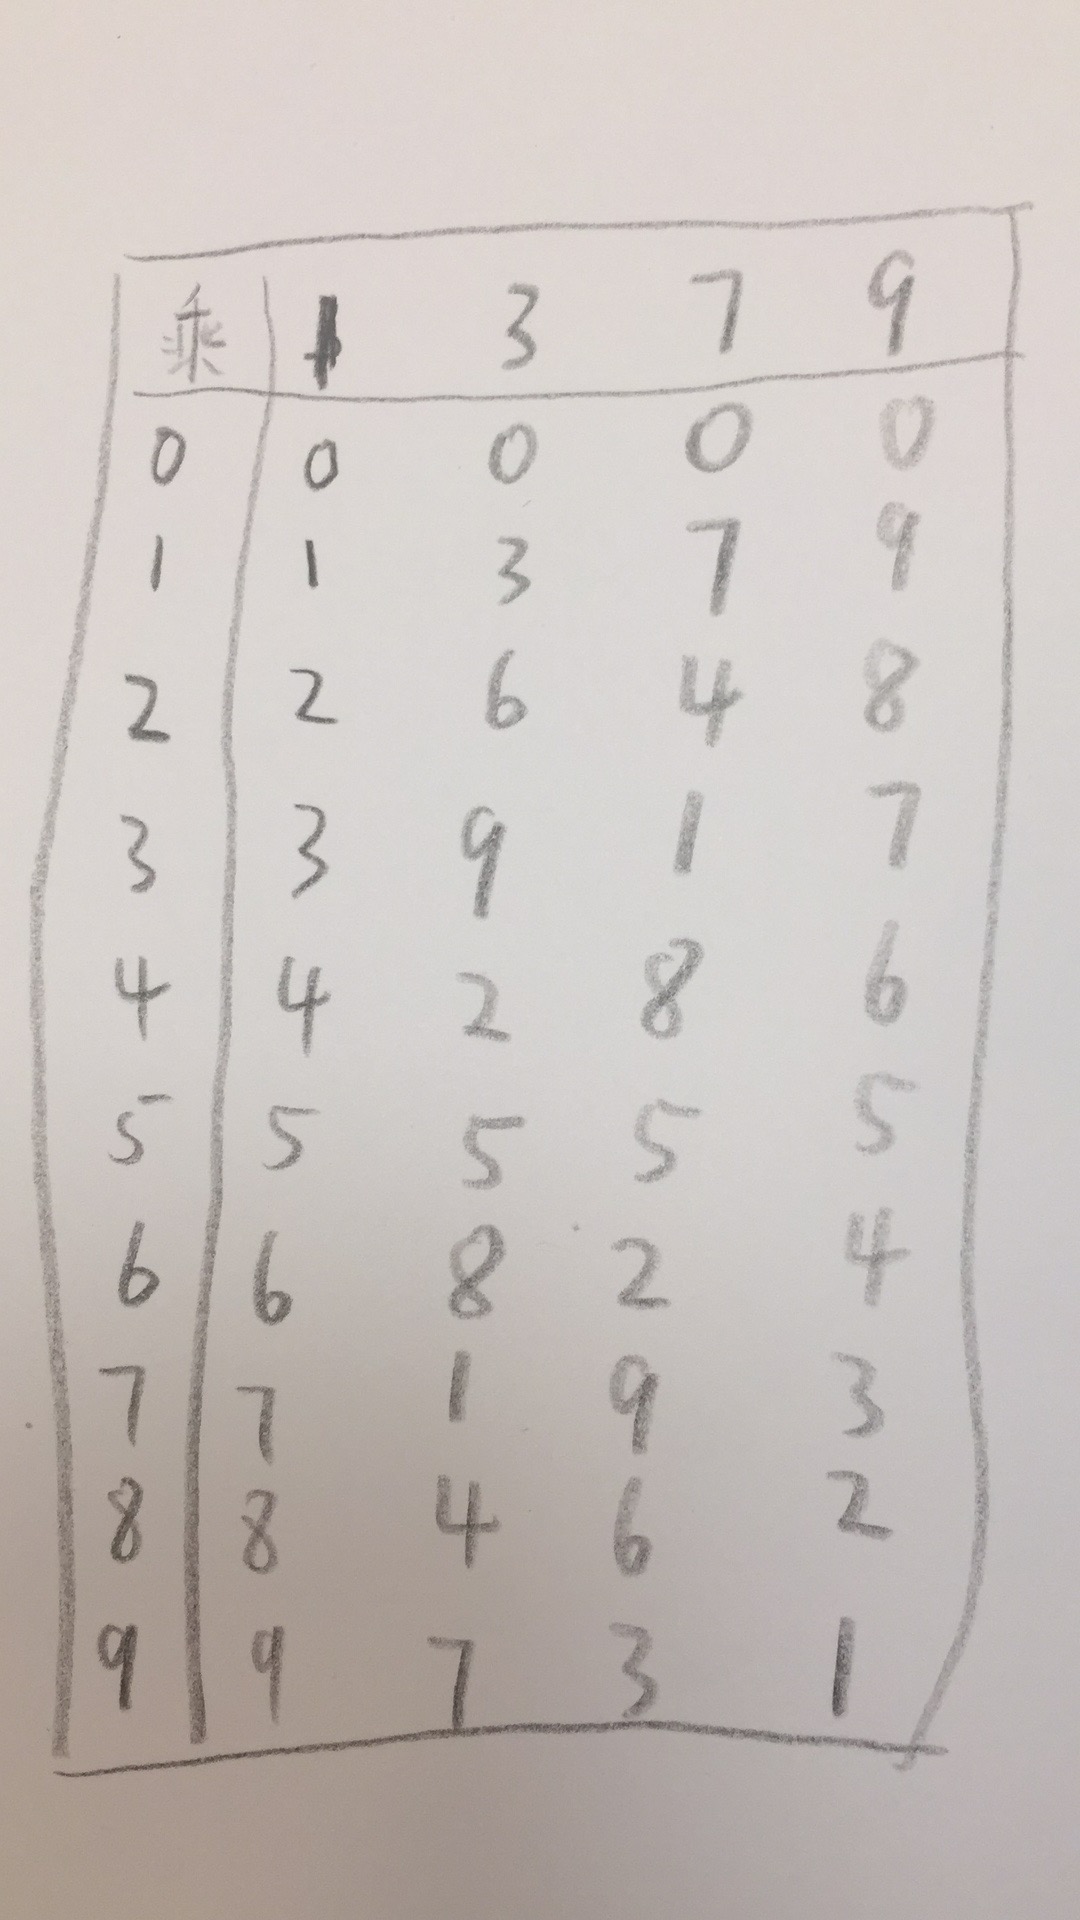 乘 1 3 7 9
0 0 0 0 0
1 1 3 7 9
2 2 6 4 8
3 3 9 1 7
4 4 2 8 6
5 5 5 5 5
6 6 8 2 4
7 7 1 9 3
8 8 4 6 2
9 9 7 3 1